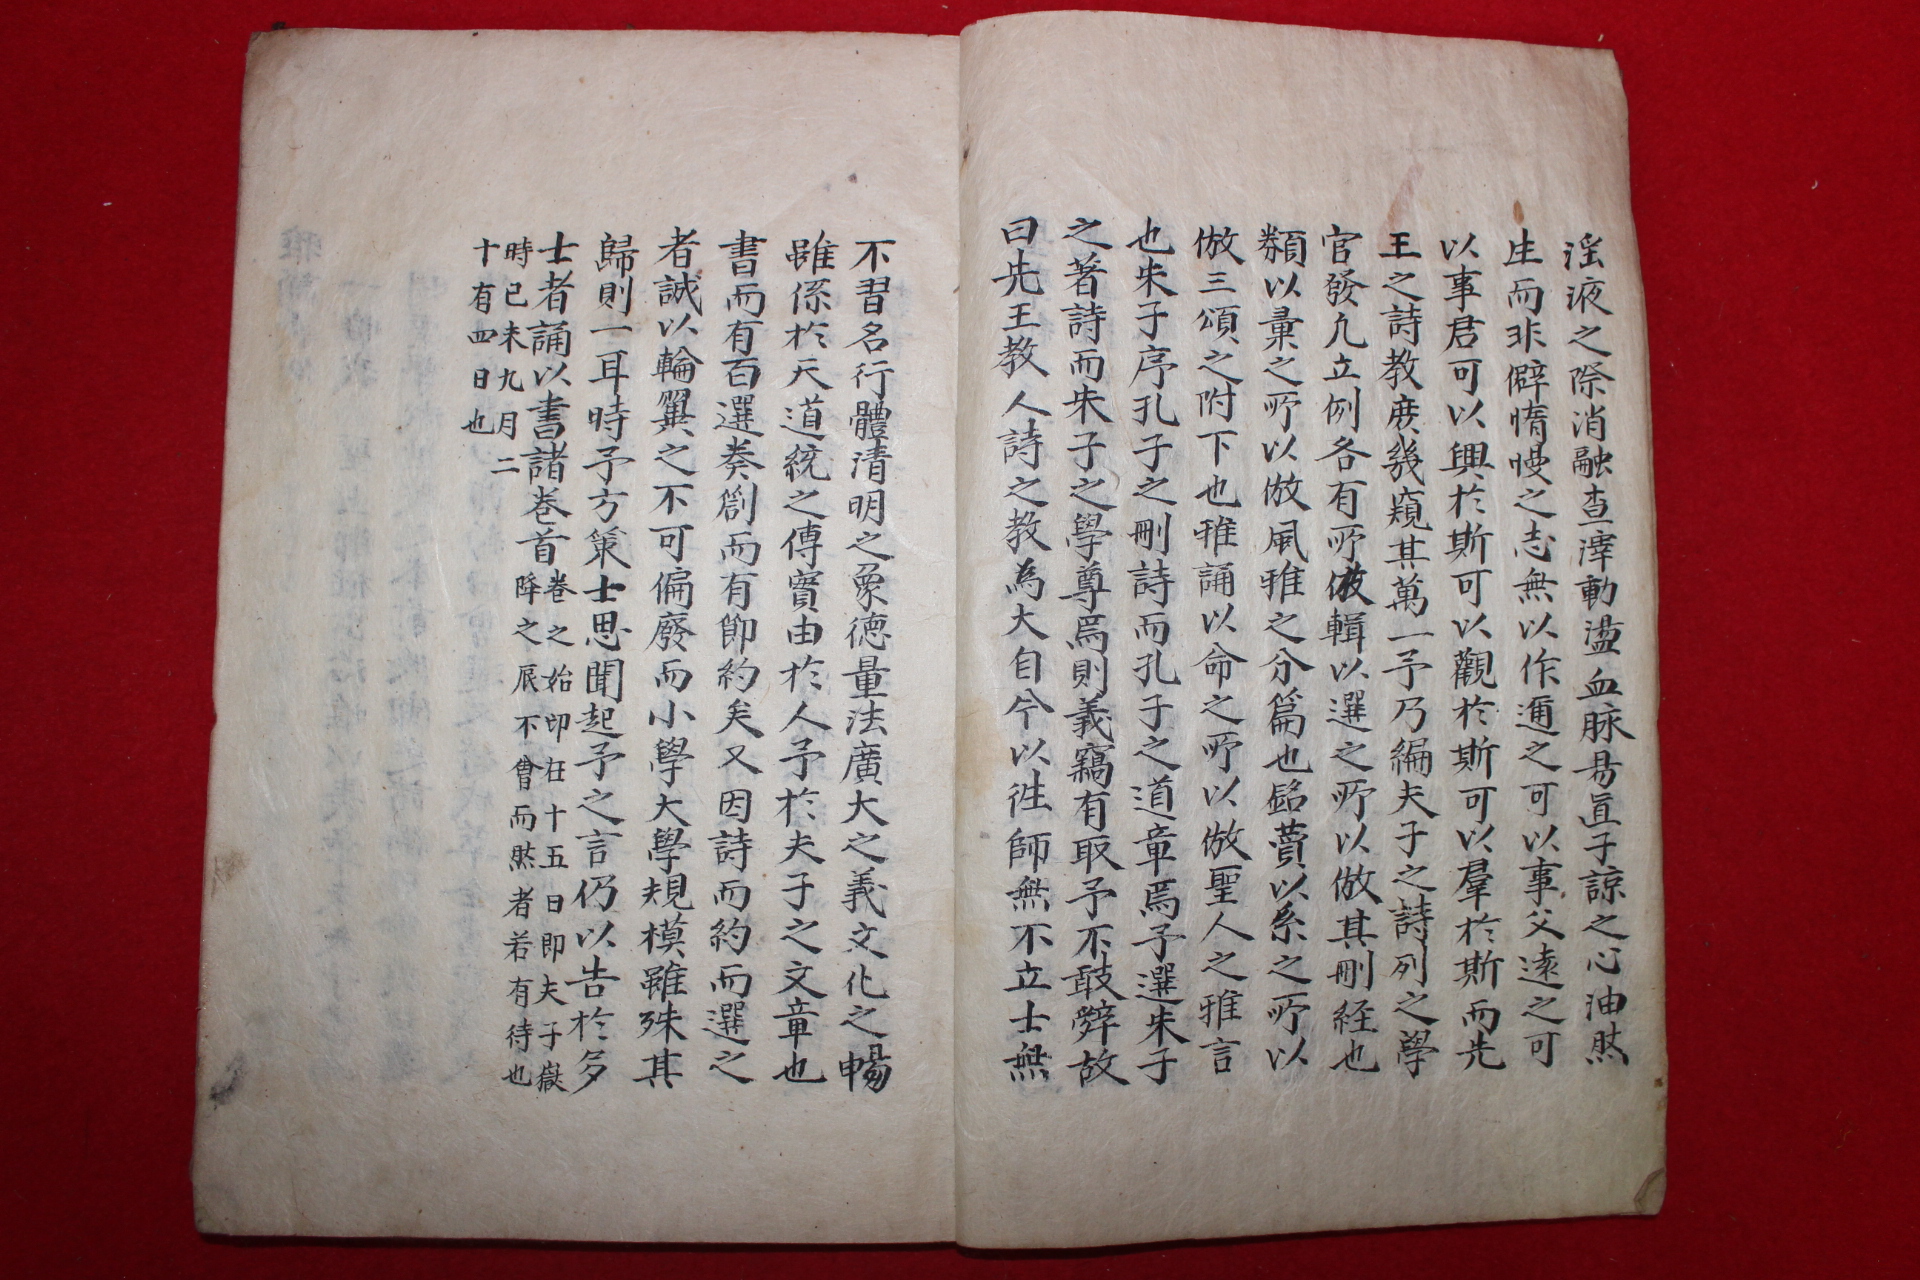 淫液之際消融査滓動盪血脉易直子諒之心油然
生而非僻惰慢之志無以作邇之可以事父遠之可
以事君可以興於斯可以觀於斯可以羣於斯而先
王之詩教庶幾窺其萬一予乃編夫子之詩列之學
官發凡立例各有所倣輯以選之所以倣其刪経也
類以彙之所以倣風雅之分篇也銘賛以系之所以
倣三頌之附下也雅誦以命之所以倣聖人之雅言
也朱子序孔子之刪詩而孔子之道章焉予選朱子
之著詩而朱子之學尊焉則義竊有取予不敢辤故
曰先王教人詩之教為大自今以徃師無不立士無
不習名行體清明之象德量法廣大之義文化之暢
雖係於天道統之傳實由於人予於夫子之文章也
書而有百選奏劄而有節約矣又因詩而約而選之
者誠以輪翼之不可偏廢而小學大學規模雖殊其
歸則一耳時予方策士思聞起予之言仍以告於多
士者誦以書諸巻首巻之始印在十五日即夫子嶽
降之辰不曾而然者若有待也
時已未九月二
十有四日也